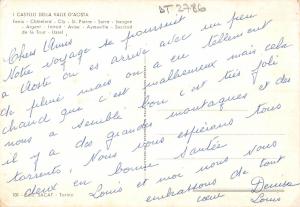 BT 2786
I CASTELLI DELLA VALLE D'AOSTA
Fenis - Châtelard - Cly - St. Pierre - Sarre - Issogne
- Argent - Introd - Avise - Aymaville - Sarriod
de la Tour - Ussel
Chers Amis
Notre voyage se poursuit
à Aoste on es arrivé avec un peu
de pluie mais on a eu tellement
chaud que c'est malheureux mais cela
nous a semblé bon c'est très joli
il y a des grandes montagnes et des
torrents, Nous vous espérons tous
deux en bonne santée
Louis et moi nous vous
embrassons de tout
cœur Denise
Louis
SACAT - Torino